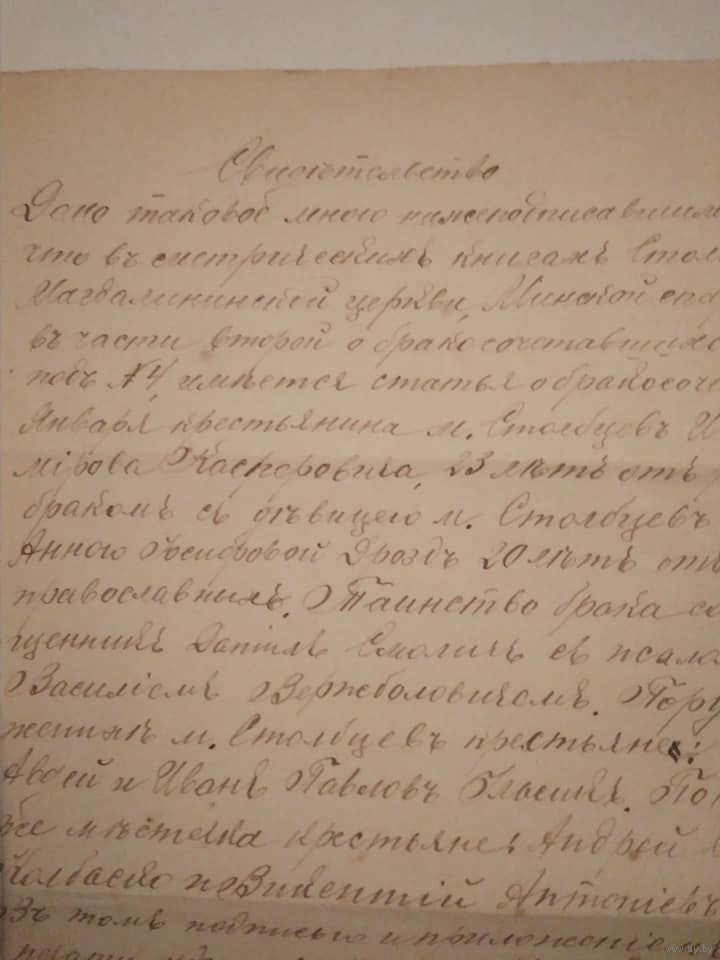 Свидѣтельство
Дано таковое мною нижеподписавшим
что въ метрическихъ книгахъ Стол
Магдалининской церкви, Минской епа
въ части второй о бракосочетавшихс
подъ №4, имѣется статья о бракосоче
Января крестьянина м. Столбцевъ И
мірова Касперовича, 23 лѣтъ отъ р
бракомъ съ дѣвицею м. Столбцевъ
Анною Іосифовой Дроздъ 20 лѣтъ отъ
православныхъ. Таинство брака со
щенникъ Даніилъ Смоличъ съ псало
Василіемъ Вержболовичемъ. Пору
женихѣ м. Столбцевъ крестьяне:
и Иванъ Павловъ По
же мѣстечка крестьяне: Андрей
Колбаско и Викентій Антоніевъ
Въ томъ подписью и приложеніе
www.ay.by